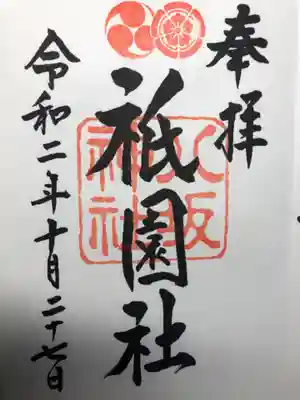 奉拝
八坂神社
祇園社
令和二年十月二十七日